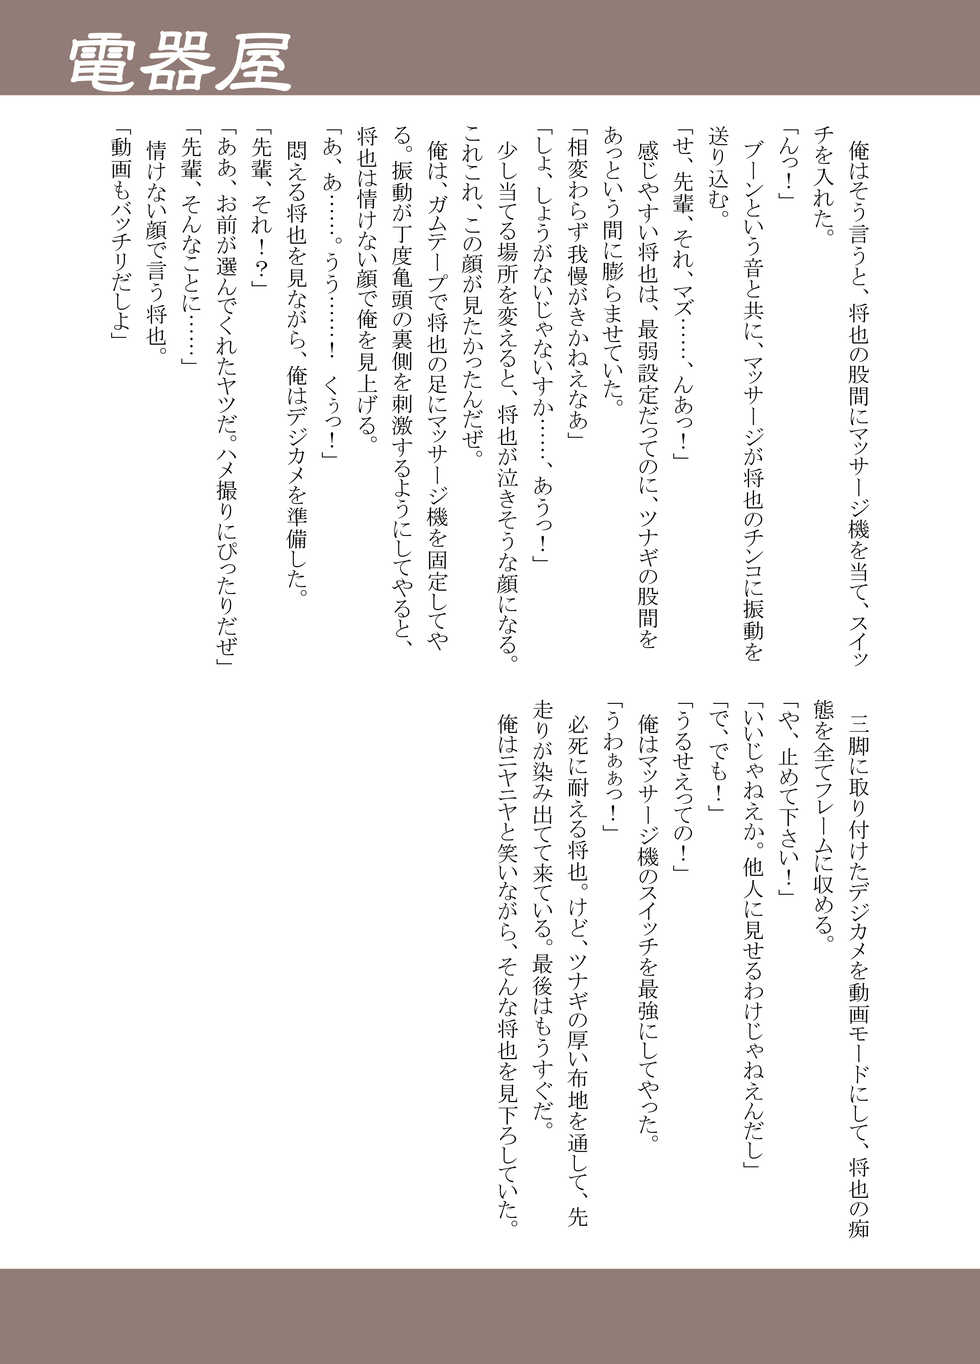 電器屋
俺はそう言うと、将也の股間にマッサージ機を当て、スイッ
チを入れた。
「んっ！」
ブーンという音と共に、マッサージが将也のチンコに振動を
送り込む。
「せ、先輩、それ、マズ……、んあっ！」
感じやすい将也は、最弱設定だってのに、ツナギの股間を
あっという間に膨らませていた。
「相変わらず我慢がきかねえなあ」
「しょ、しょうがないじゃないすか……、あうっ！」
少し当てる場所を変えると、将也が泣きそうな顔になる。
これこれ、この顔が見たかったんだぜ。
俺は、ガムテープで将也の足にマッサージ機を固定してや
る。振動が丁度亀頭の裏側を刺激するようにしてやると、
将也は情けない顔で俺を見上げる。
「あ、あ……。うう……！　くぅっ！」
悶える将也を見ながら、俺はデジカメを準備した。
「先輩、それ！？」
「ああ、お前が選んでくれたヤツだ。ハメ撮りにぴったりだぜ」
「先輩、そんなことに……」
情けない顔で言う将也。
「動画もバッチリだしよ」
三脚に取り付けたデジカメを動画モードにして、将也の痴
態を全てフレームに収める。
「や、止めて下さい！」
「いいじゃねえか。他人に見せるわけじゃねえんだし」
「で、でも！」
「うるせえっての！」
俺はマッサージ機のスイッチを最強にしてやった。
「うわぁぁっ！」
必死に耐える将也。けど、ツナギの厚い布地を通して、先
走りが染み出てて来ている。最後はもうすぐだ。
俺はニヤニヤと笑いながら、そんな将也を見下ろしていた。